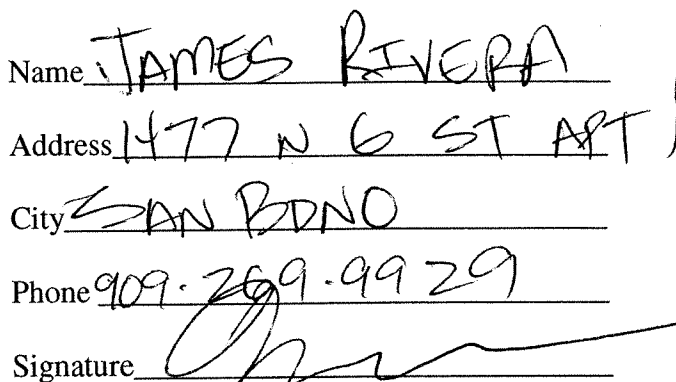 Name JAMES RIVERA
Address 1477 N 6 ST APT
City SAN BDNO
Phone 909.269.9929
Signature